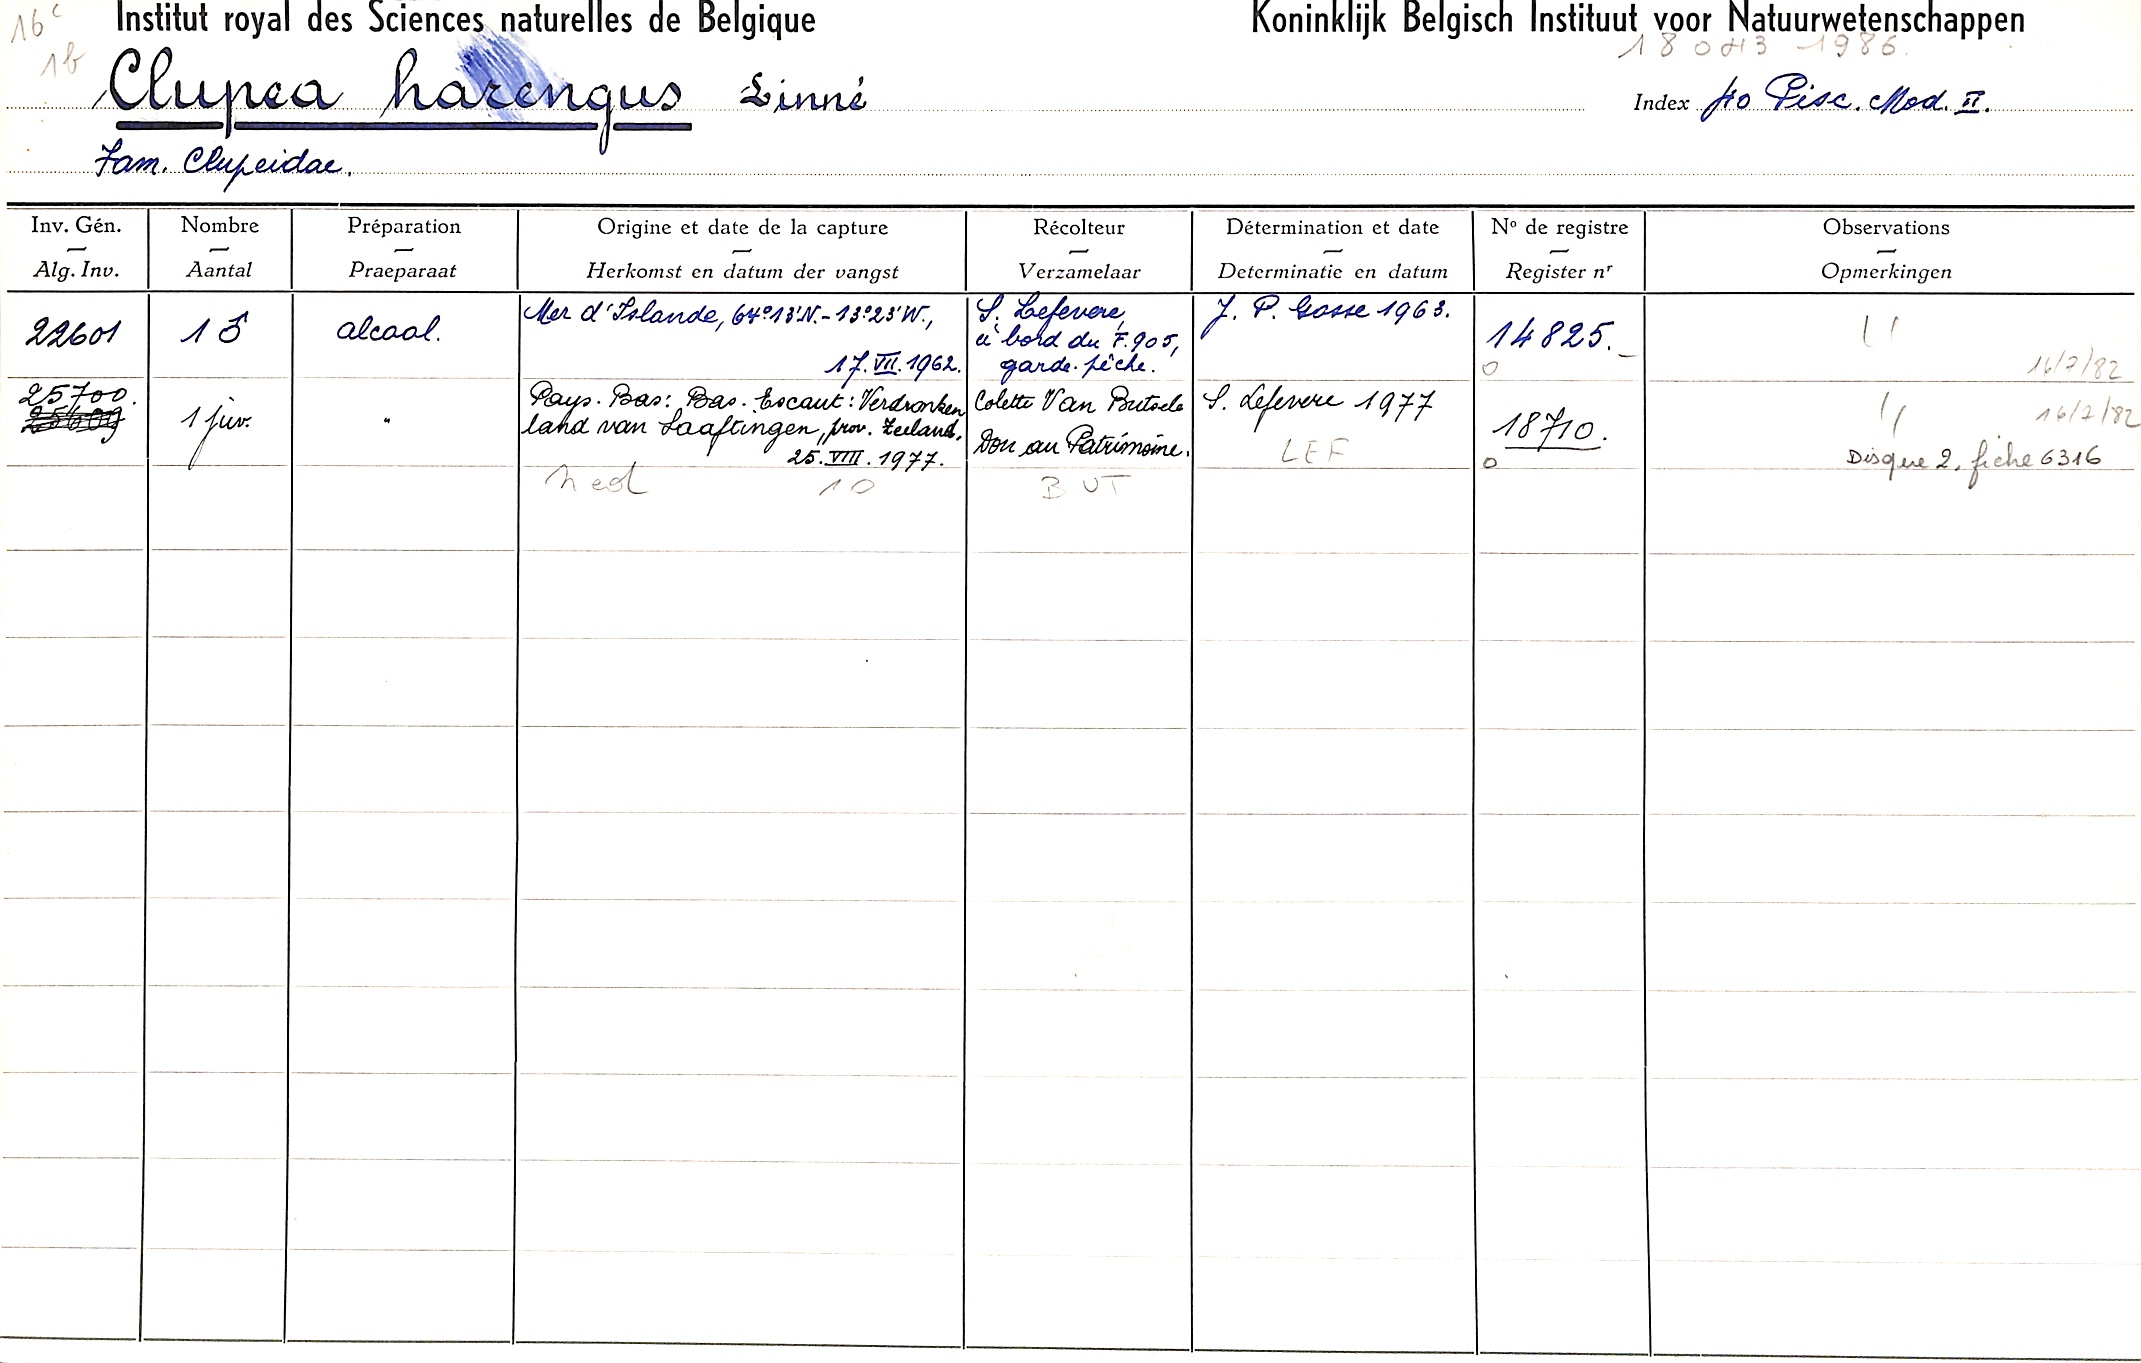 16c Institut royal des Sciences naturelles de Belgique Koninklijk Belgisch Instituut voor Natuurwetenschappen
1b 1986
Clupea harengus Linné Index Pisc. Mod. II.
Fam. Clupeidae.
Inv. Gén. Nombre Préparation Origine et date de la capture Récolteur Détermination et date No de registre Observations
Alg. Inv. Aantal Praeparaat Herkomst en datum der vangst Verzamelaar Determinatie en datum Register nr Opmerkingen
22601 1 ♂ alcool. Mer d'Islande, 64°13'N.-13°23'W., S. Lefevere, J. P. Gosse 1963. 14825.
à bord du F.905,
17.VII.1962. garde-pêche. 16/7/82
25700. Pays-Bas: Bas-Escaut: Verdronken Colette Van Butsele S. Lefevere 1977 16/7/82
1 juv. " land van Saaftingen, prov. Zeeland. Don au Patrimoine. 18710.
25.VIII.1977. LEF Disque 2, fiche 6316
Ned 10 BUT